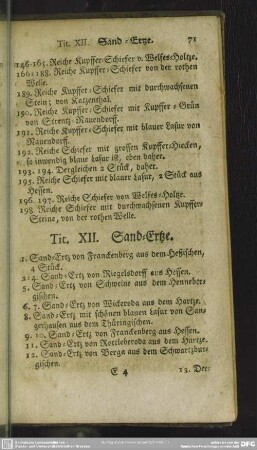 Tit. XII. Sand-Ertze. 71
146-165. Reiche Kupffer-Schiefer v. Welfes-Holtze.
166-188. Reiche Kupffer-Schiefer von der rothen
Welle.
189. Reiche Kupffer-Schiefer mit durchwachsenen
Stein; von Katzenthal.
190. Reiche Kupffer-Schiefer mit Kupffer-Grün
von Strentz-Nauendorff.
191. Reiche Kupffer-Schiefer mit blauer Lasur von
Nauendorff.
192. Reiche Schiefer mit grossen Kupffer-Hecken,
so inwendig blaue Lasur ist, eben daher.
193. 194. Dergleichen 2 Stück, daher.
195. Reiche Schiefer mit blauer Lasur, 2 Stück aus
Hessen.
196. 197. Reiche Schiefer von Welfes-Holtze.
198. Reiche Schiefer mit durchwachsenen Kupffer-
Steine, von der rothen Welle.
Tit. XII. Sand-Ertze.
1. Sand-Ertz von Franckenberg aus dem Heßischen,
4 Stück.
2-4. Sand-Ertz von Riegelsdorff aus Hessen.
5. Sand-Ertz von Schweine aus dem Henneber-
gischen.
6. 7. Sand-Ertz von Wickeroda aus dem Hartze.
8. Sand-Ertz mit schönen blauen Lasur von San-
gerhausen aus dem Thüringischen.
9. 10. Sand-Ertz von Franckenberg aus Hessen.
11. Sand-Ertz von Rottleberoda aus dem Hartze.
12. Sand-Ertz von Berga aus dem Schwartzbur-
gischen.
E 4 13. Der-